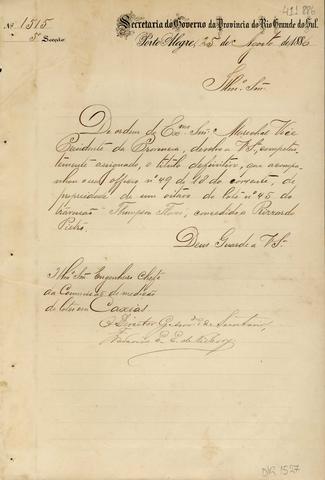 411 886
Secretaria do Governo da Provincia do Rio Grande do Sul.
Nº 1515
3ª Secção
Porto Alegre, 25 de Agosto de 188
Illmo. Snr.
De ordem do Exmo. Snr. Marechal Vice
Presidente da Provincia, devolvo a VS., competen
temente assignado, o titulo definitivo, que acompa
nhou o seu officio nº 49 de 18 do corrente, de
propriedade de um oitavo do lote nº 45 do
travessão Thompson Flores, concedido a
Pietro.
Deus Guarde a VS.
Illmo. Snr. Engenheiro Chefe
da Commissão de medição
de lotes em Caxias.
O Director Geral
1527